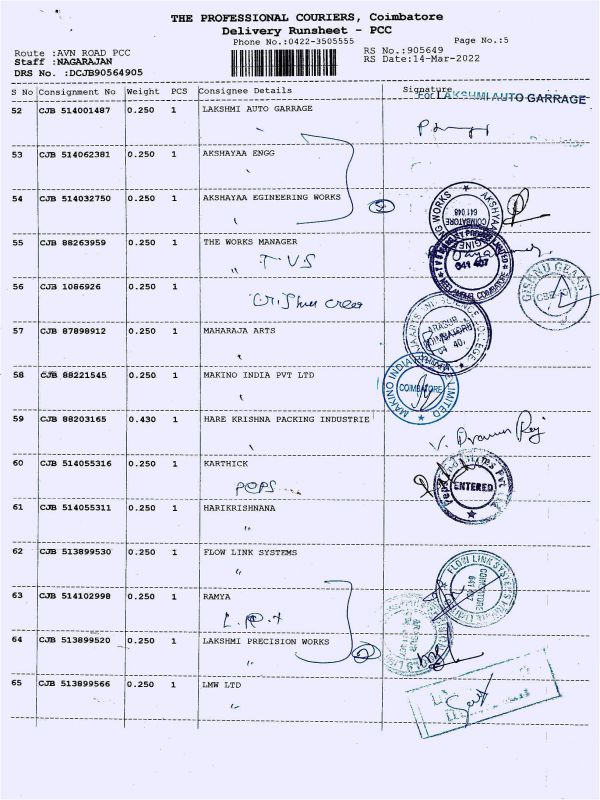 THE PROFESSIONAL COURIERS, Coimbatore
Delivery Runsheet - PCC
Phone No.:0422-3505555 Page No.:5
Route :AVN ROAD PCC RS No.:905649
Staff :NAGARAJAN RS Date:14-Mar-2022
DRS No. :DCJB90564905
S No Consignment No Weight PCS Consignee Details Signature
For LAKSHMI AUTO GARRAGE
52 CJB 514001487 0.250 1 LAKSHMI AUTO GARRAGE
53 CJB 514062381 0.250 1 AKSHAYAA ENGG
54 CJB 514032750 0.250 1 AKSHAYAA EGINEERING WORKS
AKSHYAA
COIMBATORE
641 048
55 CJB 88263959 0.250 1 THE WORKS MANAGER
TVS
641 407
NEELAMBUR, COIMBATORE
56 CJB 1086926 0.250 1
GISHNU GEARS
57 CJB 87898912 0.250 1 MAHARAJA ARTS
ARASUR
COIMBATORE
58 CJB 88221545 0.250 1 MAKINO INDIA PVT LTD
MAKINO INDIA PRIVATE LIMITED
COIMBATORE
59 CJB 88203165 0.430 1 HARE KRISHNA PACKING INDUSTRIE
60 CJB 514055316 0.250 1 KARTHICK
POPS
ENTERED
61 CJB 514055311 0.250 1 HARIKRISHNANA
62 CJB 513899530 0.250 1 FLOW LINK SYSTEMS
FLOW LINK SYSTEMS PRIVATE LIMITED
COIMBATORE
63 CJB 514102998 0.250 1 RAMYA
64 CJB 513899520 0.250 1 LAKSHMI PRECISION WORKS
65 CJB 513899566 0.250 1 LMW LTD